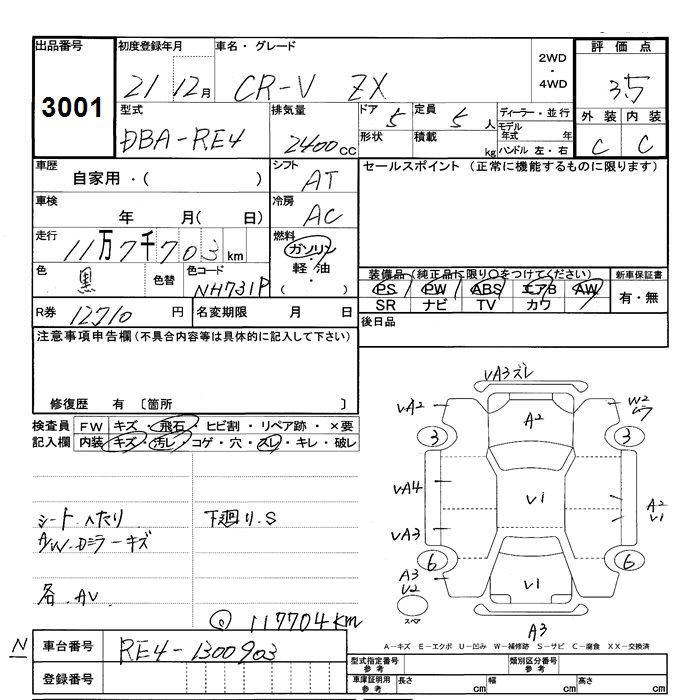 出品番号 初度登録年月 車名・グレード 2WD・4WD 評価点
3001 21 12月 CR-V ZX 3.5
型式 排気量 ドア 5 定員 5人 ディーラー・並行 外装 内装
DBA-RE4 2400cc 形状 積載 kg モデル年式 年 ハンドル 左・右 C C
車歴 シフト セールスポイント (正常に機能するものに限ります)
自家用・( ) AT
車検 冷房
年 月( 日) AC
走行 燃料
11万7千703km ガソリン・軽油( )
色 色替 色コード 装備品(純正品に限り○をつけてください) 新車保証書
黒 NH731P PS PW ABS エアB AW 有・無
SR ナビ TV カワ
R券 12710円 名変期限 月 日 後日品
注意事項申告欄(不具合内容等は具体的に記入して下さい)
修復歴 有 〔箇所 〕
検査員 FW キズ・飛石・ヒビ割・リペア跡・×要
記入欄 内装 キズ・汚レ・コゲ・穴・スレ・キレ・破レ
シートヘたり 下廻り.S
A/W.Dミラーキズ
各.AV
117704km
VA3ズレ
VA2 A2 W2
3 3
VA4 V1 A2
V1
VA3
6 6
A3 V1
U2
スペア
A3
A-キズ E-エクボ U-凹み W-補修跡 S-サビ C-腐食 XX-交換済
N 車台番号 RE4-1300903
登録番号
型式指定番号 参考 類別区分番号 参考
車庫証明用 参考 長さ cm 幅 cm 高さ cm